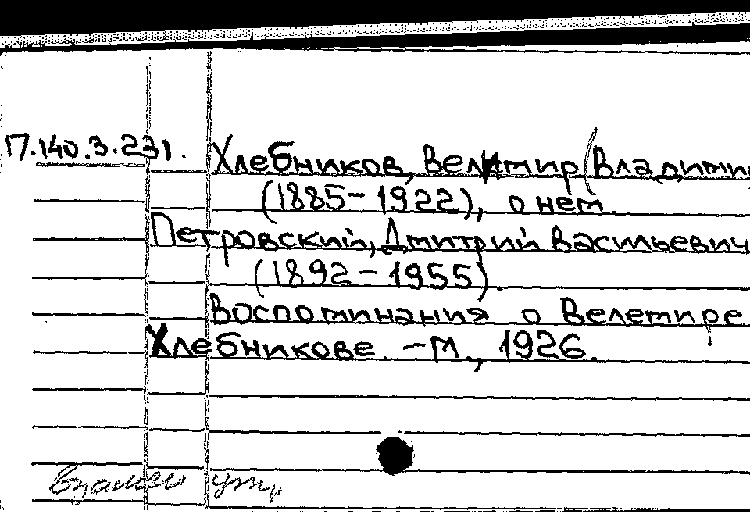 П.140.3.231. Хлебников, Велимир (Владими
(1885-1922), о нем.
Петровский, Дмитрий Васильевич
(1892-1955).
Воспоминания о Велемире
Хлебникове. - М., 1926.
взамен утр.